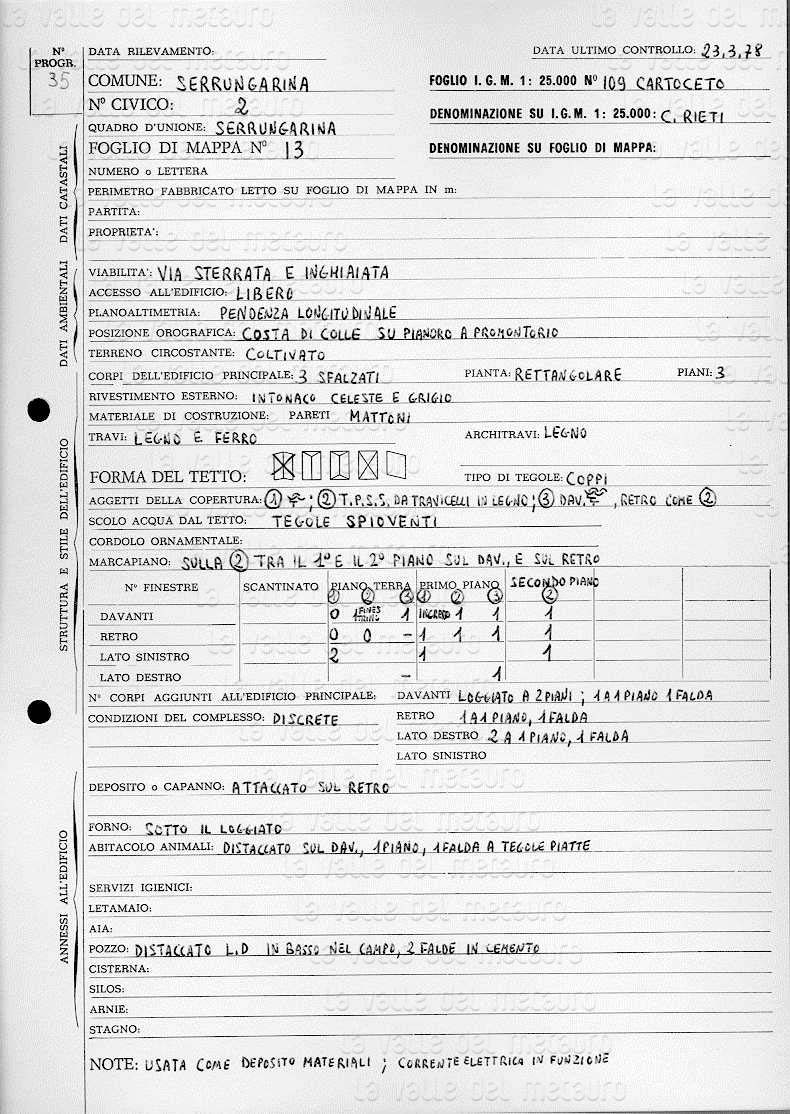 Nº PROGR. 35
DATA RILEVAMENTO:
DATA ULTIMO CONTROLLO: 23.3.78
COMUNE: SERRUNGARINA
FOGLIO I. G. M. 1: 25.000 Nº 109 CARTOCETO
Nº CIVICO: 2
DENOMINAZIONE SU I.G.M. 1: 25.000: C. RIETI
QUADRO D'UNIONE: SERRUNGARINA
FOGLIO DI MAPPA Nº 13
DENOMINAZIONE SU FOGLIO DI MAPPA:
DATI CATASTALI
NUMERO o LETTERA
PERIMETRO FABBRICATO LETTO SU FOGLIO DI MAPPA IN m:
PARTITA:
PROPRIETA':
DATI AMBIENTALI
VIABILITA': VIA STERRATA E INGHIAIATA
ACCESSO ALL'EDIFICIO: LIBERO
PLANOALTIMETRIA: PENDENZA LONGITUDINALE
POSIZIONE OROGRAFICA: COSTA DI COLLE SU PIANORO A PROMONTORIO
TERRENO CIRCOSTANTE: COLTIVATO
STRUTTURA E STILE DELL'EDIFICIO
CORPI DELL'EDIFICIO PRINCIPALE: 3 SFALZATI PIANTA: RETTANGOLARE PIANI: 3
RIVESTIMENTO ESTERNO: INTONACO CELESTE E GRIGIO
MATERIALE DI COSTRUZIONE: PARETI MATTONI
TRAVI: LEGNO E FERRO ARCHITRAVI: LEGNO
FORMA DEL TETTO: TIPO DI TEGOLE: COPPI
AGGETTI DELLA COPERTURA: 1 ; 2 T.P.S.S. DA TRAVICELLI IN LEGNO; 3 DAV. , RETRO COME 2
SCOLO ACQUA DAL TETTO: TEGOLE SPIOVENTI
CORDOLO ORNAMENTALE:
MARCAPIANO: SULLA 2 TRA IL 1º E IL 2º PIANO SUL DAV., E SUL RETRO
Nº FINESTRE SCANTINATO PIANO TERRA PRIMO PIANO SECONDO PIANO
1 2 3 1 2 3 2
DAVANTI 0 1 1 INGRESSO 1 1 1
RETRO 0 0 - 1 1 1 1
LATO SINISTRO 2 1 1
LATO DESTRO - 1
Nº CORPI AGGIUNTI ALL'EDIFICIO PRINCIPALE: DAVANTI LOGGIATO A 2 PIANI ; 1 A 1 PIANO 1 FALDA
CONDIZIONI DEL COMPLESSO: DISCRETE RETRO 1 A 1 PIANO, 1 FALDA
LATO DESTRO 2 A 1 PIANO, 1 FALDA
LATO SINISTRO
ANNESSI ALL'EDIFICIO
DEPOSITO o CAPANNO: ATTACCATO SUL RETRO
FORNO: SOTTO IL LOGGIATO
ABITACOLO ANIMALI: DISTACCATO SUL DAV., 1 PIANO, 1 FALDA A TEGOLE PIATTE
SERVIZI IGIENICI:
LETAMAIO:
AIA:
POZZO: DISTACCATO L.D IN BASSO NEL CAMPO, 2 FALDE IN CEMENTO
CISTERNA:
SILOS:
ARNIE:
STAGNO:
NOTE: USATA COME DEPOSITO MATERIALI ; CORRENTE ELETTRICA IN FUNZIONE
la valle del metauro